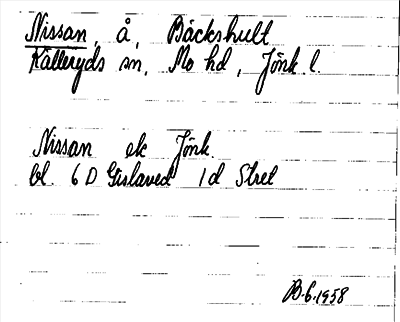 Nissan, å, Bäckshult
Källeryds sn, Mo hd, Jönk. l.
Nissan ek Jönk.
bl. 6 D Gislaved 1d Stret
B-6.1958